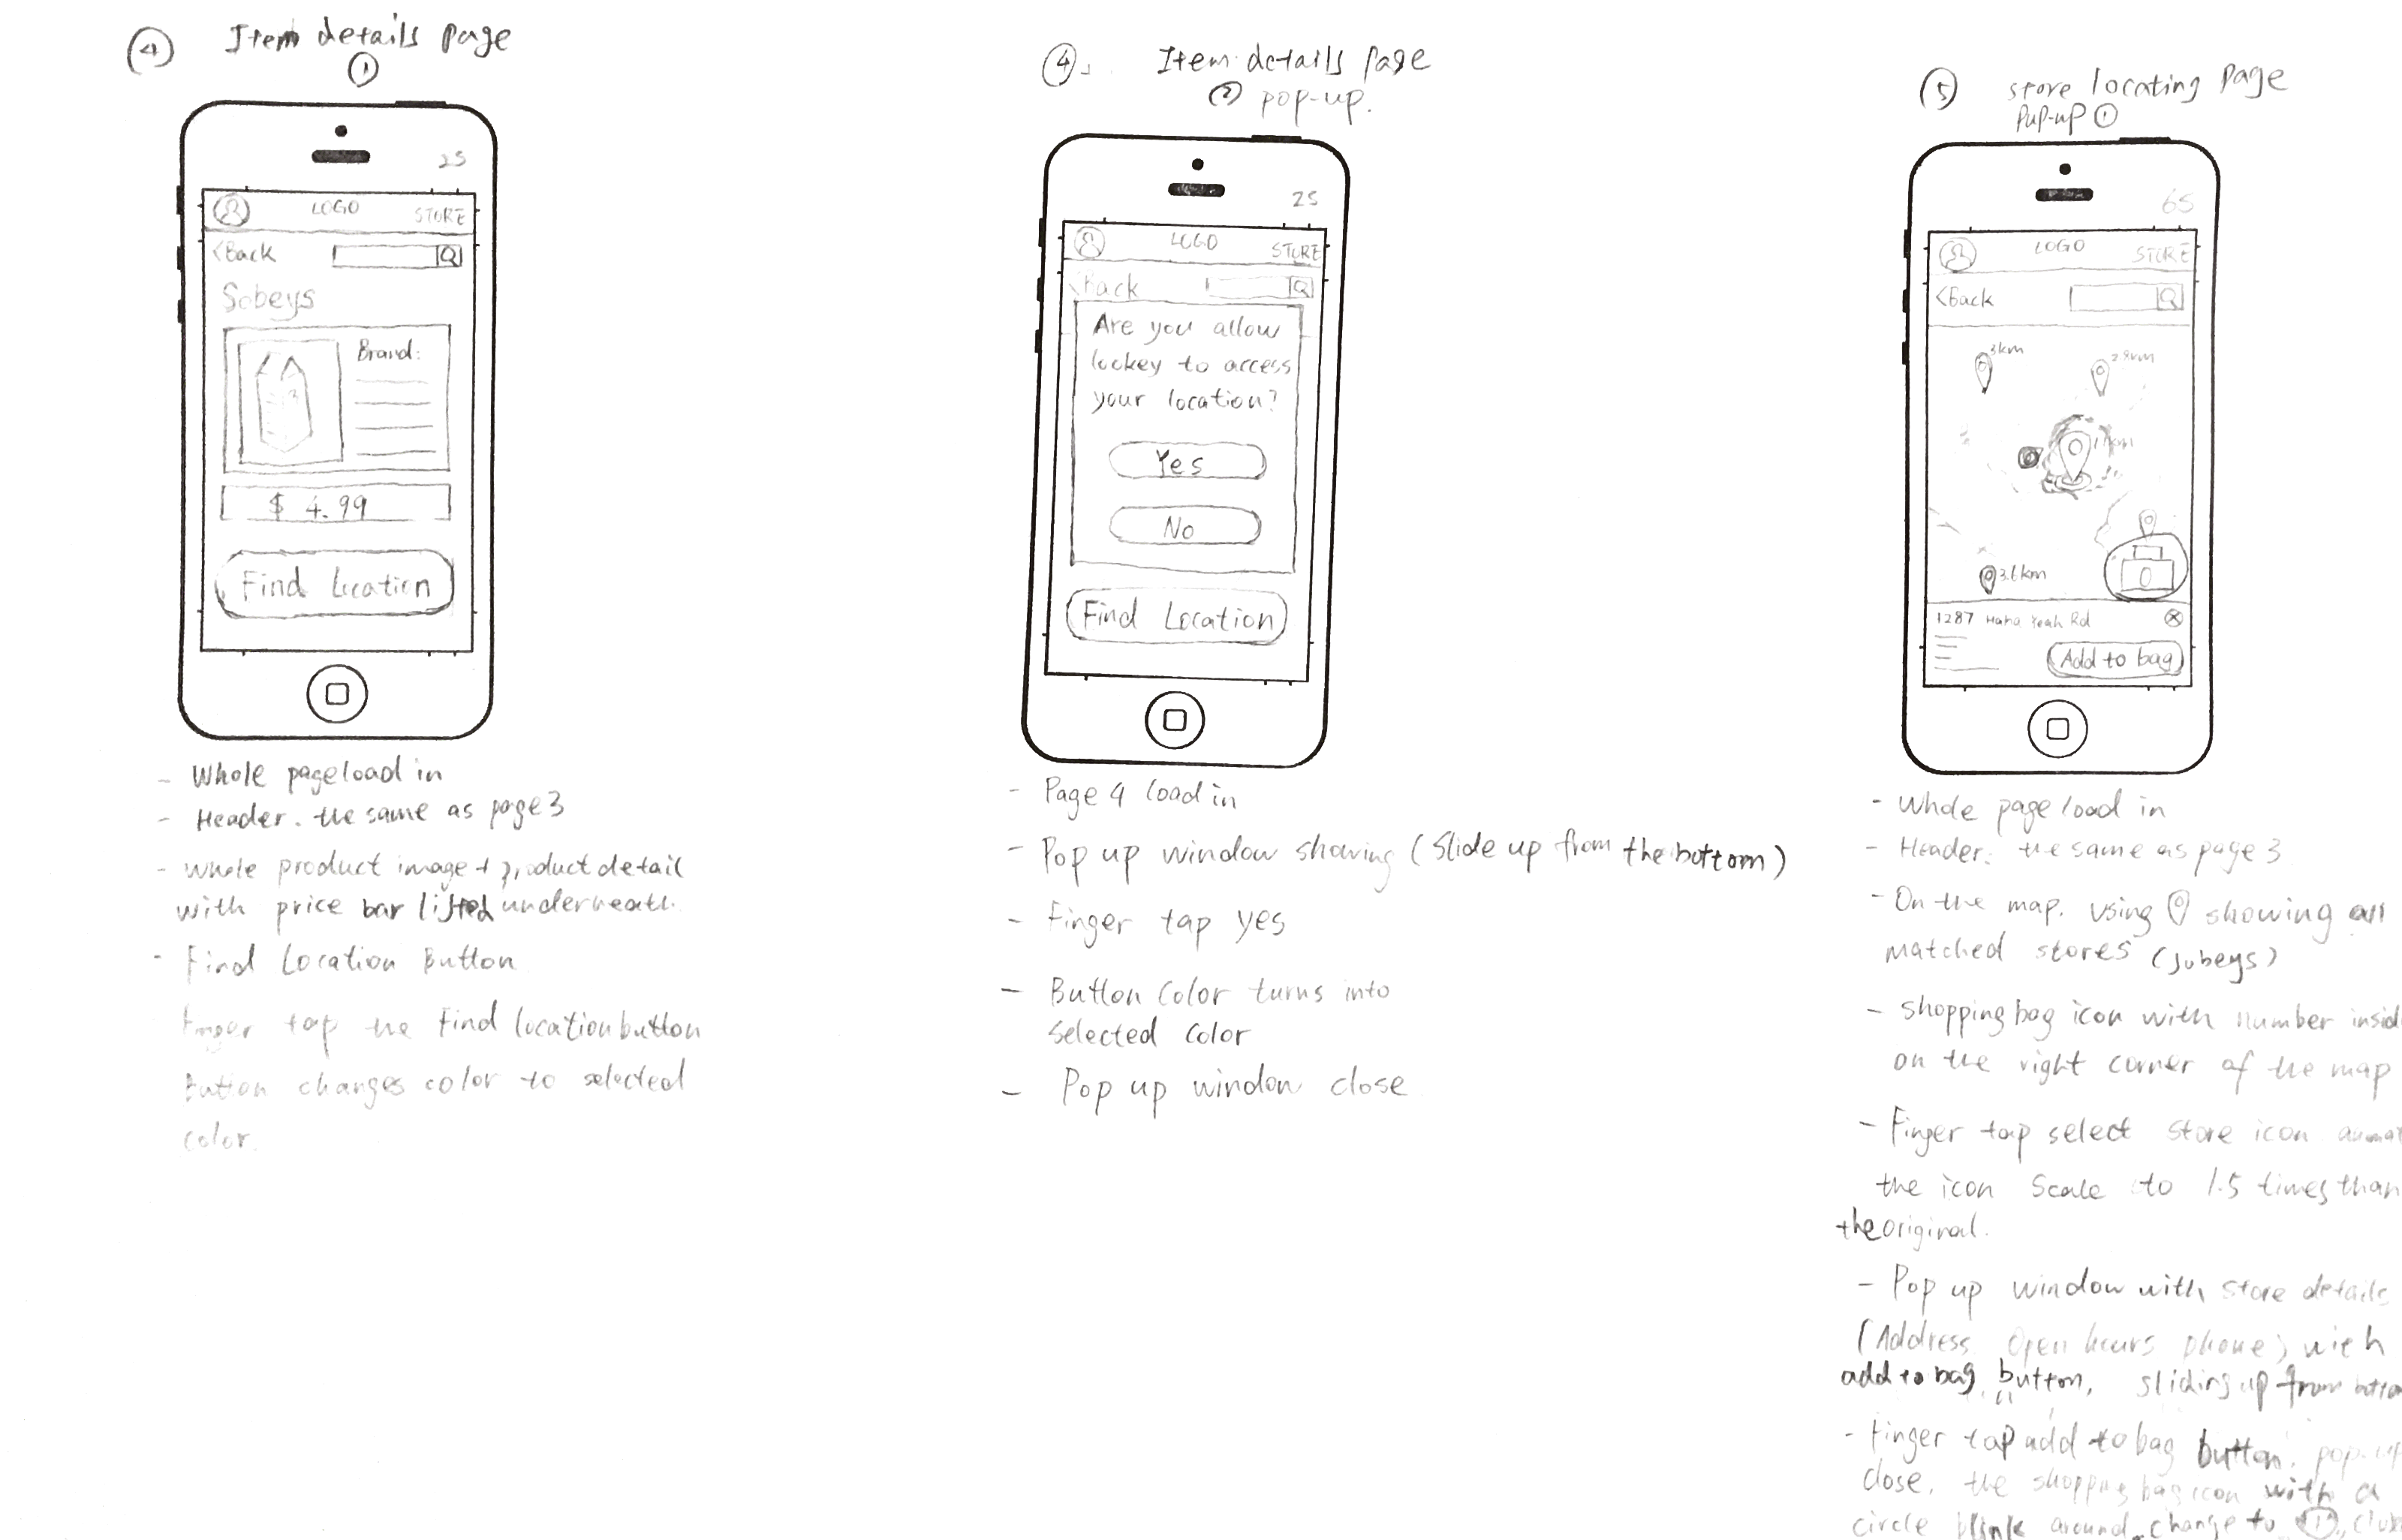 4 Item details page
1
2S
LOGO STORE
<Back
Sobeys
Brand:
$ 4.99
Find Location
- Whole page load in
- Header. the same as page 3
- whole product image + product detail
with price bar listed underneath.
- Find Location Button
Finger tap the Find location button
Button changes color to selected
color.
4. Item details page
2 pop-up.
2S
LOGO STORE
Back
Are you allow
lockey to access
your location?
Yes
No
Find Location
- Page 4 load in
- Pop up window showing (Slide up from the bottom)
- Finger tap yes
- Button Color turns into
selected color
- Pop up window close
5 store locating page
Pop-up 1
6S
LOGO STORE
<Back
3km
2.9km
3.6km
1287 Haha Yeah Rd
Add to bag
- Whole page load in
- Header: the same as page 3
- On the map. using showing all
matched stores (Sobeys)
- Shopping bag icon with number insid
on the right corner of the map
- Finger tap select store icon animat
the icon Scale to 1.5 times than
the original.
- Pop up window with store details
(Address open hours phone) with
add to bag button, sliding up from botto
- Finger tap add to bag button, pop-up
close, the shopping bag icon with a
circle blink around change to